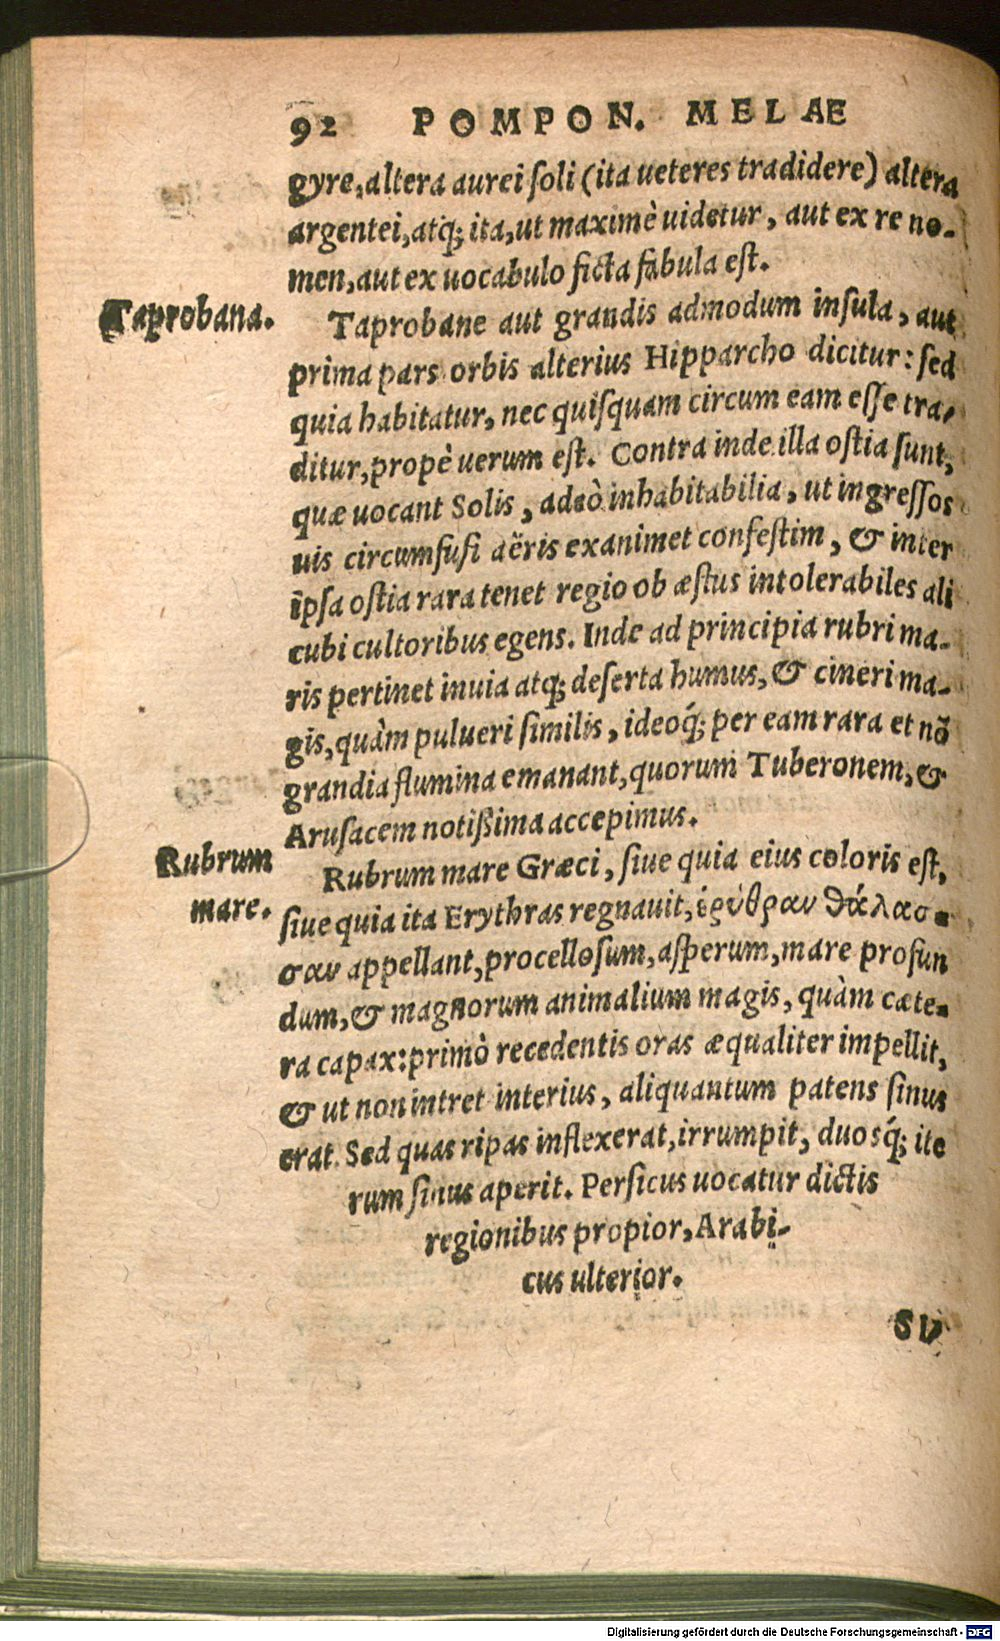 92 POMPON. MELAE
gyre, altera aurei ſoli (ita ueteres tradidere) altera
argentei, atq; ita, ut maximè uidetur, aut ex re no-
men, aut ex uocabulo ficta fabula eſt.
Taprobana.
Taprobane aut grandis admodum inſula, aut
prima pars orbis alterius Hipparcho dicitur: ſed
quia habitatur, nec quiſquam circum eam eſſe tra-
ditur, propè uerum eſt. Contra inde illa oſtia ſunt,
quæ uocant Solis, adeò inhabitabilia, ut ingreſſos
uis circumfuſi aëris exanimet confeſtim, & inter
ipſa oſtia rara tenet regio ob æſtus intolerabiles ali
cubi cultoribus egens. Inde ad principia rubri ma-
ris pertinet inuia atq; deſerta humus, & cineri ma-
gis, quàm pulueri ſimilis, ideoq́; per eam rara et nõ
grandia flumina emanant, quorum Tuberonem, &
Aruſacem notißima accepimus.
Rubrum
mare.
Rubrum mare Græci, ſiue quia eius coloris eſt,
ſiue quia ita Erythras regnauit, ἐρύθραν θάλασ-
σαν appellant, procelloſum, aſperum, mare profun
dum, & magnorum animalium magis, quàm cæte-
ra capax: primò recedentis oras æqualiter impellit,
& ut non intret interius, aliquantum patens ſinus
erat. Sed quas ripas inflexerat, irrumpit, duosq́; ite
rum ſinus aperit. Perſicus uocatur dictis
regionibus propior, Arabi-
cus ulterior.
SV
Digitalisierung gefördert durch die Deutsche Forschungsgemeinschaft - DFG